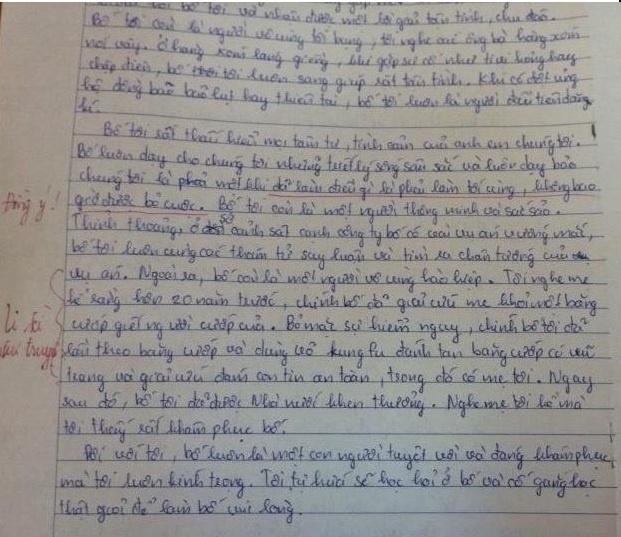 với bố tôi và nhận được một lời giải tận tình, chu đáo.
Bố tôi còn là người vô cùng tốt bụng, tôi nghe các ông bà hàng xóm
nói vậy. Ở hàng xóm láng giềng, khi gặp sự cố như tivi hỏng hay
chập điện, bố tôi luôn sang giúp rất tận tình. Khi có đợt ủng
hộ đồng bào bão lụt hay thiên tai, bố tôi luôn là người đầu tiên đăng
kí.
Bố tôi rất thấu hiểu mọi tâm tư, tình cảm của anh em chúng tôi.
Bố luôn dạy cho chúng tôi những triết lý sống sâu sắc và luôn dạy bảo
chúng tôi là phải một khi đã làm điều gì là phải làm tới cùng, không bao
giờ được bỏ cuộc. Bố tôi còn là một người thông minh và sắc sảo.
Đúng ý!
Thỉnh thoảng, ở sở cảnh sát cạnh công ty bố có vài vụ án vướng mắc,
bố tôi luôn cùng các thám tử suy luận và tìm ra chân tướng của
vụ án. Ngoài ra, bố còn là một người vô cùng hào hiệp. Tôi nghe mẹ
kể rằng hơn 20 năm trước, chính bố đã giải cứu mẹ khỏi một băng
cướp giết người cướp của. Bỏ mặc sự hiểm nguy, chính bố tôi đã
Li kì
lần theo băng cướp và dùng võ kungfu đánh tan băng cướp có vũ
truyện
trang và giải cứu đám con tin an toàn, trong đó có mẹ tôi. Ngay
sau đó, bố tôi đã được Nhà nước khen thưởng. Nghe mẹ tôi kể mà
tôi thấy rất khâm phục bố.
Đối với tôi, bố luôn là một con người tuyệt vời và đáng khâm phục
mà tôi luôn kính trọng. Tôi tự hứa sẽ học hỏi ở bố và cố gắng học
thật giỏi để làm bố vui lòng.